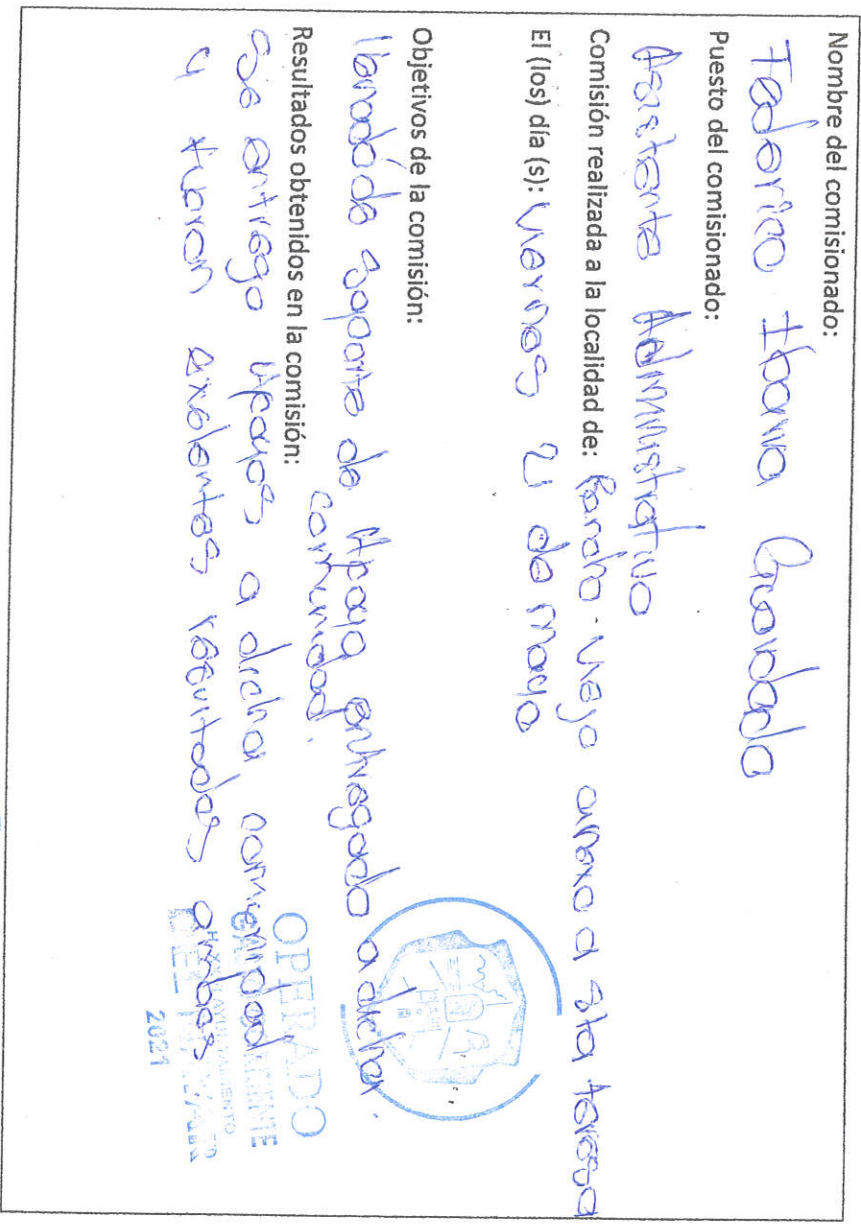 Nombre del comisionado:
Federico Ibarra Guardado
Puesto del comisionado:
Asistente Administrativo
Comisión realizada a la localidad de: Rancho Viejo anexo a sta teresa
El (los) día (s): Viernes 21 de mayo
Objetivos de la comisión:
de soporte de Apoyo entregado a dicha
comunidad.
Resultados obtenidos en la comisión:
Se entrego Apoyos a dicha comunidad
y fueron exelentes resultados ambas
OPERADO
2021